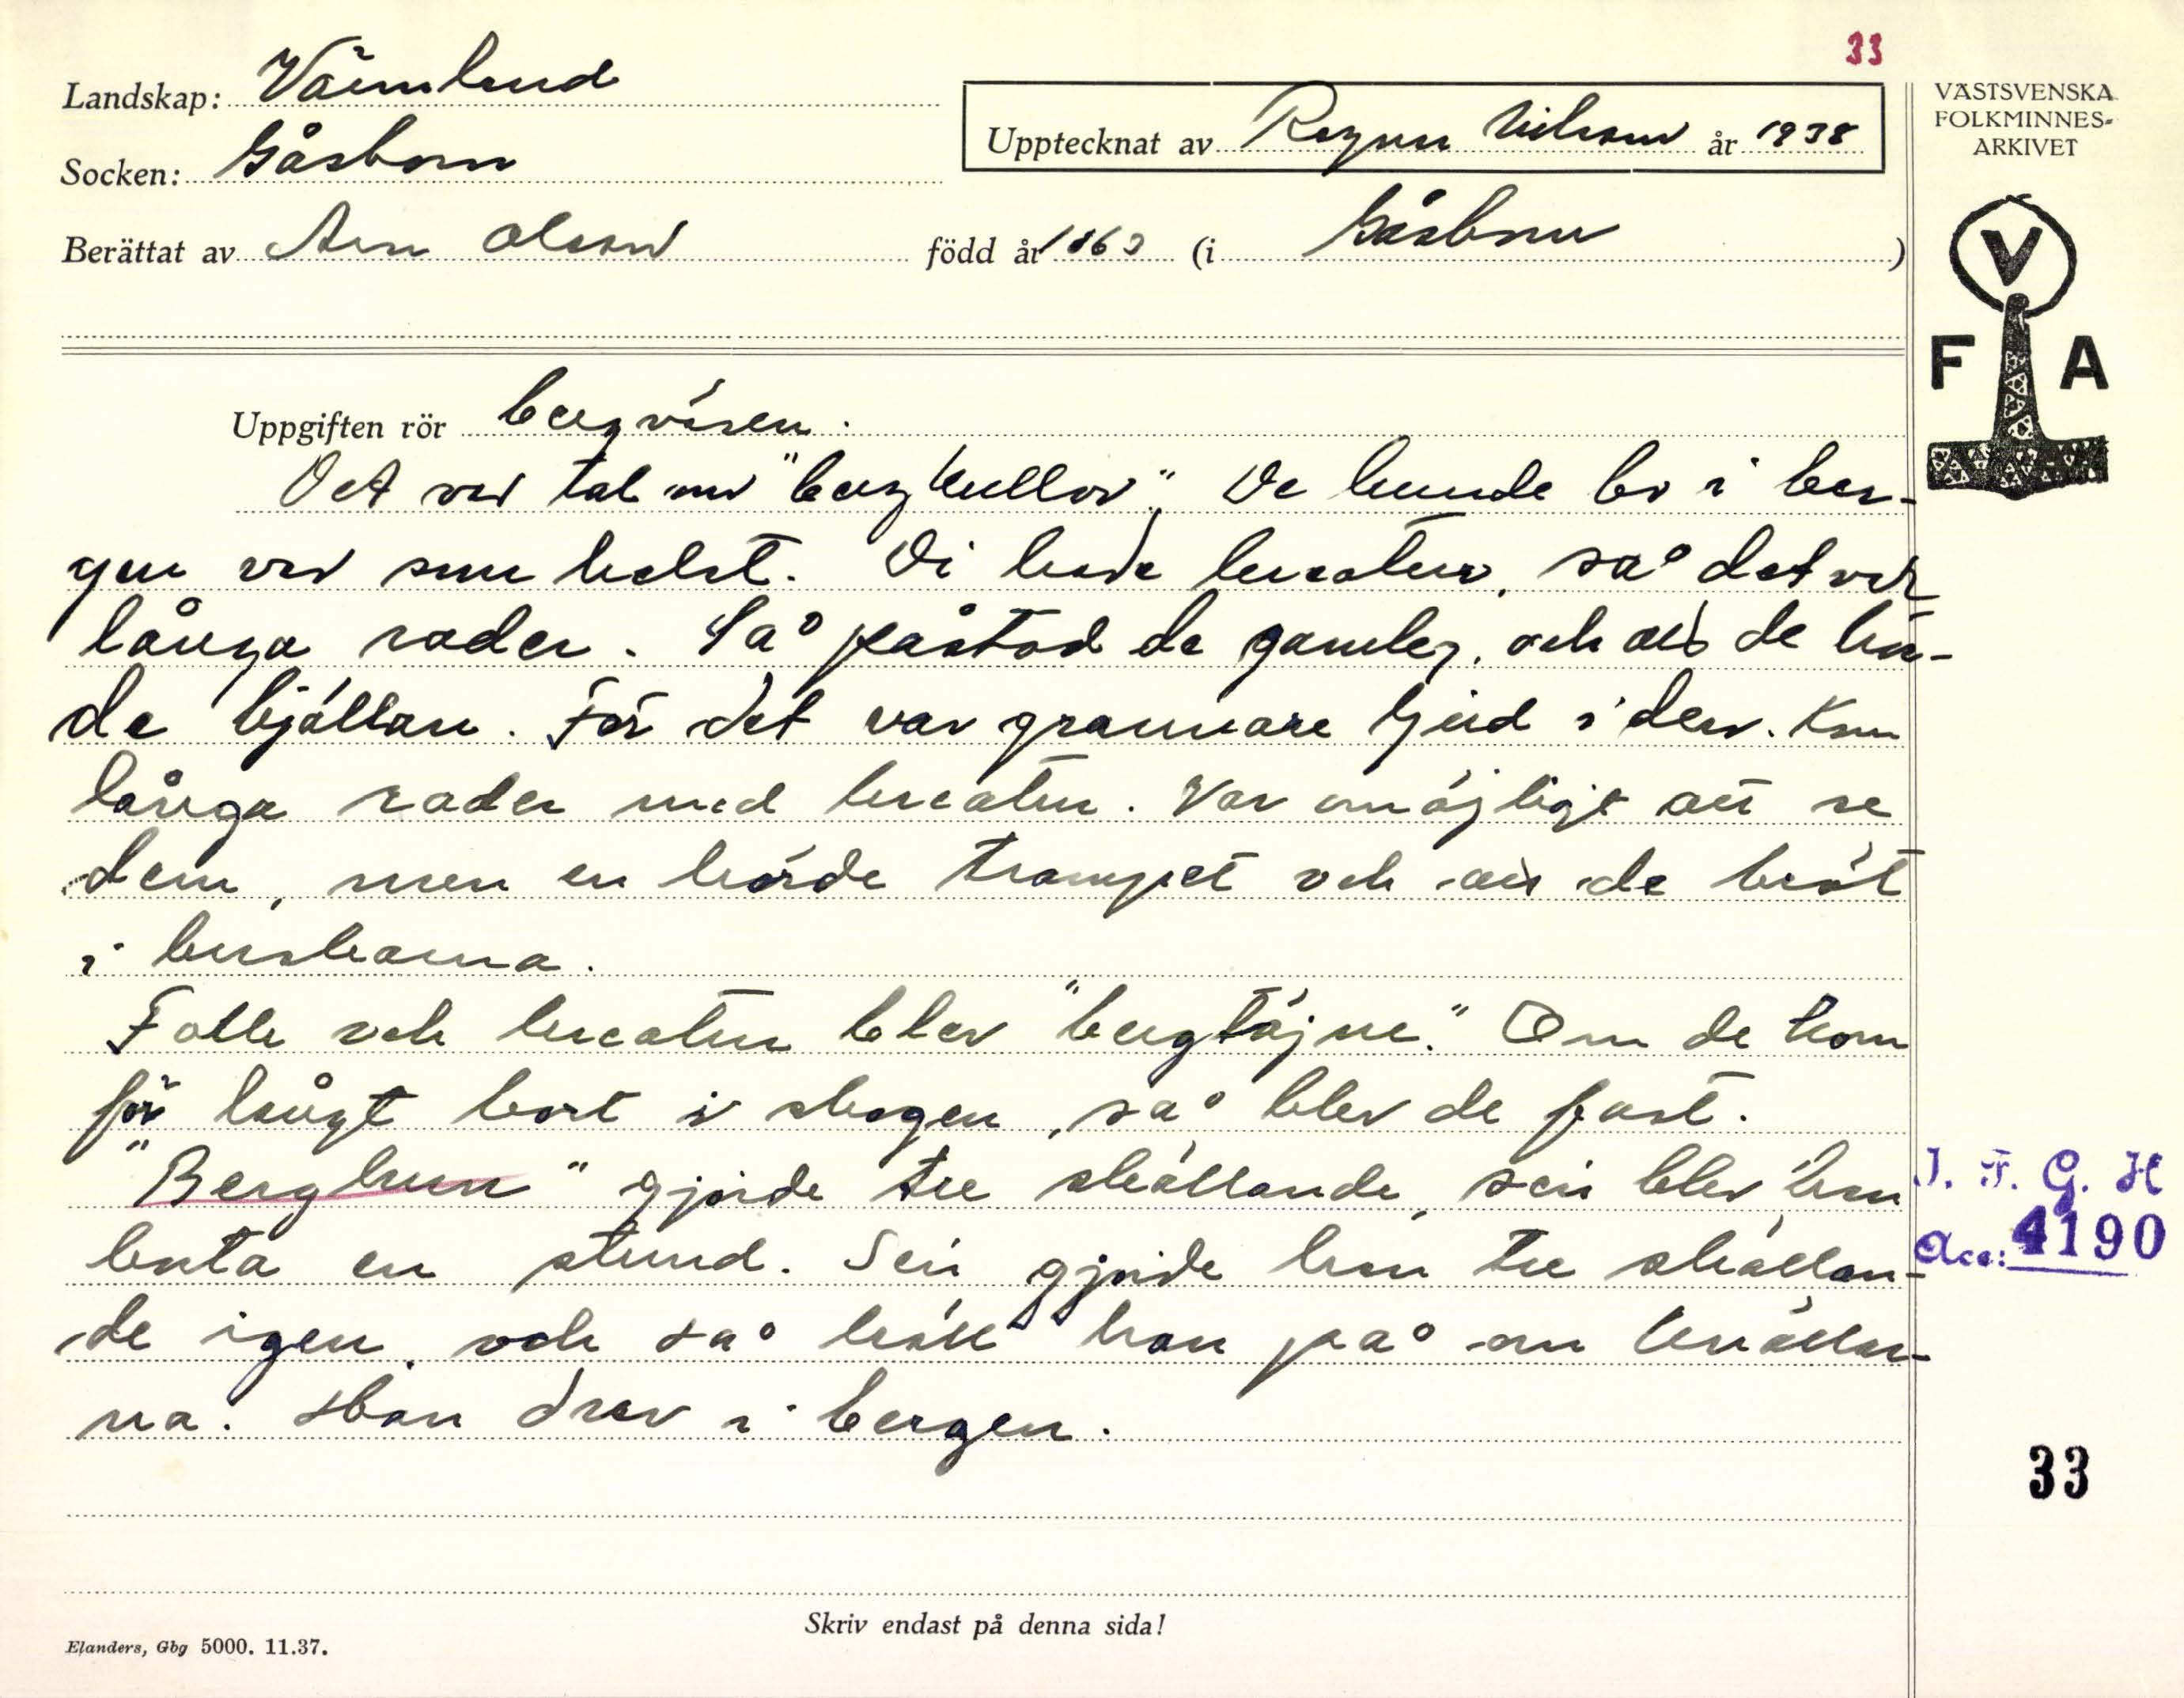 33
Landskap: Värmland
Socken: Gåsborn
Upptecknat av Ragnar Nilsson år 1938
Berättat av Olsson född år 1863 (i Gåsborn )
VÄSTSVENSKA
FOLKMINNES-
ARKIVET
V
F A
Uppgiften rör bergväsen.
Det var tal om "bergkullor". De kunde bo i ber-
gen var som helst. Di hade kreatur, så det var
långa rader. Så påstod de gamle, och att de hör-
de bjällan. För det var grannare ljud i den. Kom
långa rader med kreatur. Var omöjligt att se
dem, men en hörde trampet och att de bröt
i buskarna.
Folk och kreatur blev "bergtäjne." Om de kom
för långt bort i skogen, så blev de fast.
"Bergkun" gjorde tre skällande, sen blev han
borta en stund. Sen gjorde han tre skällan-
de igen, och så höll han på om kvällar-
na. Han drev i bergen.
I. F. G. H
Acc: 4190
33
Skriv endast på denna sida!
Elanders, Gbg 5000. 11.37.